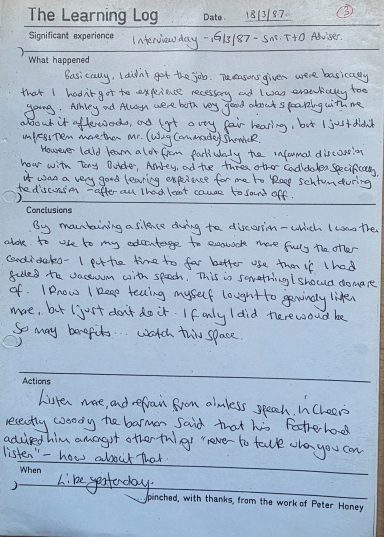 The Learning Log Date 18/3/87. 3
Significant experience Interview day - 16/3/87 - Snr. T+D Adviser.
What happened
Basically, I didn't get the job. The reasons given were basically
that I hadn't got the experience necessary and I was essentially too
young. Ashley and Alwyn were both very good about speaking with me
about it afterwards, and I got a very fair hearing, but I just didn't
impress them more than Mr. (Wing Commander)
However I did learn a lot from particularly the informal discussion
hour with Tony Ashley, and the three other candidates. Specifically,
it was a very good learning experience for me to keep schtum during
the discussion - after all I had lost cause to sound off.
Conclusions
By maintaining a silence during the discussion - which I was then
able to use to my advantage to evaluate more fully the other
candidates - I put the time to far better use than if I had
filled the vacuum with speech. This is something I should do more
of. I know I keep telling myself I ought to genuinely listen
more, but I just don't do it. If only I did there would be
so many benefits... watch this space.
Actions
Listen more, and refrain from aimless speech. In Cheers
recently Woody the barman said that his Father had
advised him amongst other things "never to talk when you can
listen" - how about that.
When
Like yesterday.
pinched, with thanks, from the work of Peter Honey